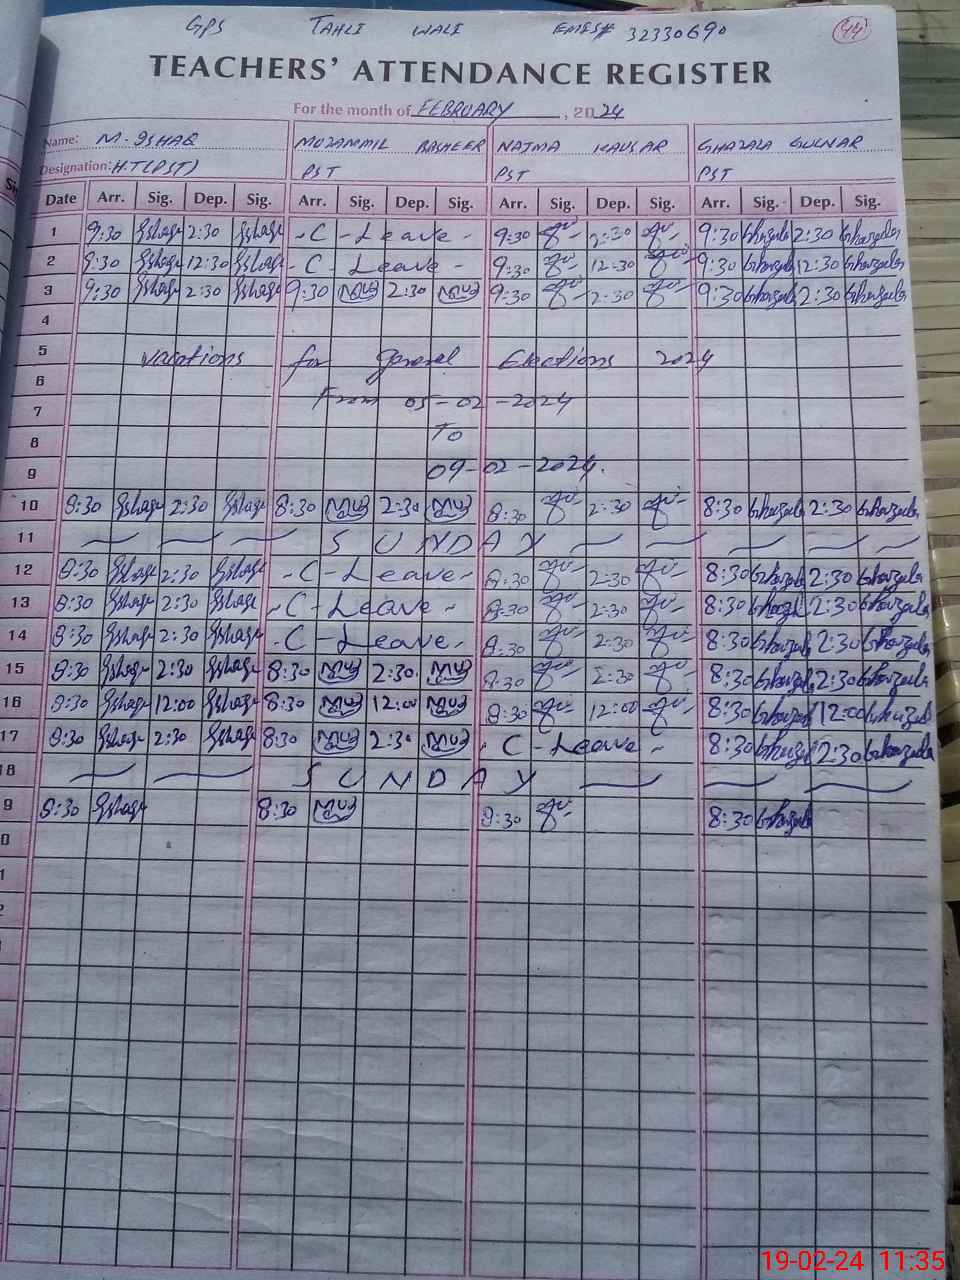 GPS TAHLI WALI EMIS# 32330690 44
TEACHERS' ATTENDANCE REGISTER
For the month of FEBRUARY, 2024
Name: M. ISHAQ MUZAMMIL BASHEER NAJMA KAUSAR GHAZALA GULNAR
Designation: HT(PST) PST PST PST
Date Arr. Sig. Dep. Sig. Arr. Sig. Dep. Sig. Arr. Sig. Dep. Sig. Arr. Sig. Dep. Sig.
1 9:30 Ishaq 2:30 Ishaq - C - Leave - 9:30 2:30 9:30 Ghazala 2:30 Ghazala
2 9:30 Ishaq 12:30 Ishaq - C - Leave - 9:30 12:30 9:30 Ghazala 12:30 Ghazala
3 9:30 Ishaq 2:30 Ishaq 9:30 2:30 9:30 2:30 9:30 Ghazala 2:30 Ghazala
4
5 Vacations for General Elections 2024
6
7 From 05-02-2024
8 To
9 09-02-2024.
10 8:30 Ishaq 2:30 Ishaq 8:30 2:30 8:30 2:30 8:30 Ghazala 2:30 Ghazala
11 SUNDAY
12 8:30 Ishaq 2:30 Ishaq - C - Leave - 8:30 2:30 8:30 Ghazala 2:30 Ghazala
13 8:30 Ishaq 2:30 Ishaq - C - Leave - 8:30 2:30 8:30 Ghazala 2:30 Ghazala
14 8:30 Ishaq 2:30 Ishaq - C - Leave - 8:30 2:30 8:30 Ghazala 2:30 Ghazala
15 8:30 Ishaq 2:30 Ishaq 8:30 2:30 8:30 2:30 8:30 Ghazala 2:30 Ghazala
16 8:30 Ishaq 12:00 Ishaq 8:30 12:00 8:30 12:00 8:30 Ghazala 12:00 Ghazala
17 8:30 Ishaq 2:30 Ishaq 8:30 2:30 - C - Leave - 8:30 Ghazala 2:30 Ghazala
18 SUNDAY
9 8:30 Ishaq 8:30 8:30 8:30 Ghazala
0
1
2
19-02-24 11:35